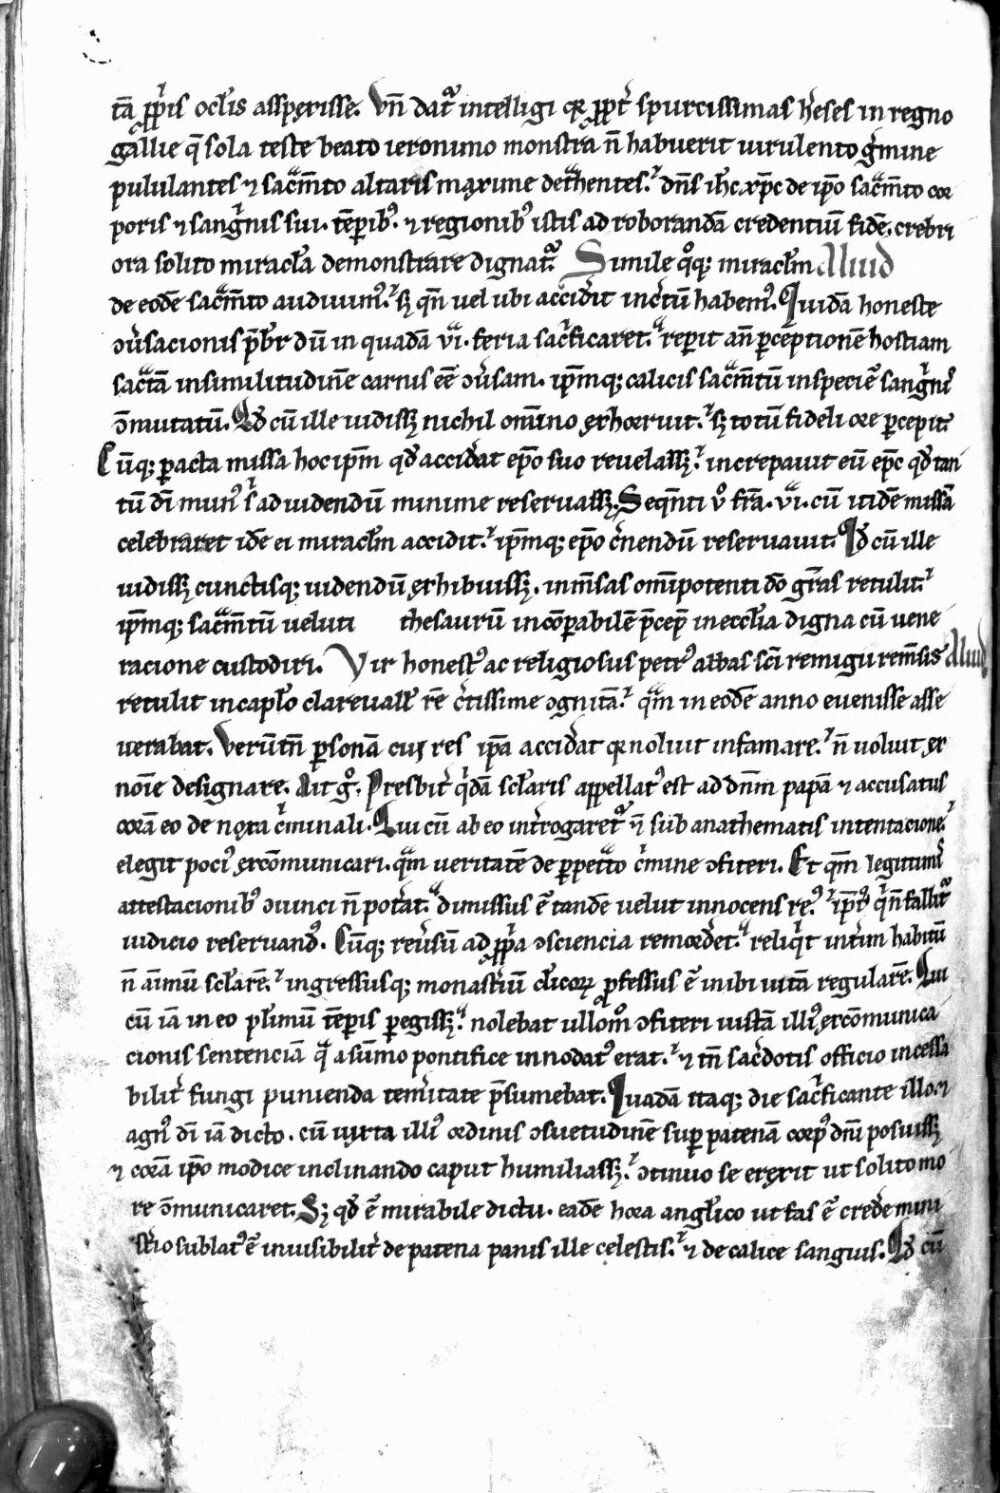 tā ꝓp̄ijs ocl̓is asspexisse. Vn̄ dat᷑ intelligi qr ꝓpt̓ spurcissimas h̓eses in regno
gallie q̄ sola teste beato ieronimo monstra n̄ habuerit uirulento g̓mine
pululantes ⁊ sac̄mto altaris maxime det̓hentes. dn̄s ih̄c xp̄c de ip̄o sac̄mto cor
poris ⁊ sang̓nis sui. tēporib; ⁊ regionib; istis ad roborandā credentiū fidē. crebri
ora solito miracl̓a demonstrare dignat᷑. Simile qͦq; miracl̓m Aliud
de eodē sac̄mto audiuim᷒. sꝫ qn̄ uel ubi accid̓it inc̓tū habem᷒. Quidā honeste
ꝯu̓sacionis p̄bʼr dū in quadā vi. feria sac̓ficaret. rep̓it an̄ ꝑceptionē hostiam
sac̄tā in similitudinē carnis eē ꝯu̓sam. ip̄mq; calicis sac̄mtū in speciē sang̓nis
ꝯmutatū. Qd̓ cū ille uidissꝫ nichil om̄ino exhorruit. sꝫ totū fideli ore ꝑcepit.
Cūq; ꝑacta missa hoc ip̄m qd̓ accid̓at ep̄o suo reuelassꝫ. increpauit eū ep̄c qd̓ tan
tū dī mun᷒ s̓ ad uidendū minime reseruassꝫ. Seqn̄ti v̓o fr̄a. vi. cū itidē missā
celebraret idē ei miracl̓m accidit. ip̄mq; ep̄o c̓nendū reseruauit. Qd̓ cū ille
uidissꝫ cunctisq; uidendū exhibuissꝫ. inm̄sas om̄ipotenti dō gr̄as retulit.
ip̄mq; sac̄mtū ueluti thesaurū incōꝑabilē p̄cep̄ in eccl̓ia digna cū uene
racione custodiri. Vir honest᷒ ac religiosus petr᷒ abbas sc̄i remigii rem̄sis Aliud
retulit in capl̓o clareuall̓ rē c̓tissime ꝯgnitā. quā in eodē anno euenisse asse
uerabat. Verūtn̄ ꝑsonā cui᷒ res ip̄a accid̓at qr noluit infamare. n̄ uoluit ex
noīe designare. Ait g̊. Presbit̓ q̓dā scl̓aris appellat᷒ est ad dn̄m papā ⁊ accusatus
corā eo de noxa c̓minali. Qui cū ab eo int̓rogaret᷑ ⁊ sub anathematis intentacione.
elegit poci᷒ excōmunicari. quā ueritatē de ꝑpetͣto c̓mine ꝯfiteri. Et qm̄ legitimis
attestacionib; ꝯuinci n̄ pot̓at. dimissus ē tandē uelut innocens re᷒. ip̄i᷒ q̓ n̄ fallit᷑
iudicio reseruand᷒. Cūq; reu̓sū ad ꝓp̄a ꝯsciencia remord̓et. reliq̓t int̓im habitū
n̄ aīmū scl̓arē. ingressusq; monast̓iū cl̓icorꝝ ꝓfessus ē inibi uitā regularē. Qui
cū iā in eo pl̓imū tēporis ꝑegissꝫ. nolebat ullomͦ ꝯfiteri iustā illi᷒ excōmunica
cionis sentenciā qͣ a sūmo pontifice innodat᷒ erat. ⁊ tn̄ sac̓dotis officio incessa
bilit̓ fungi punienda tem̓itate p̄sumebat. Quadā itaq; die sac̓ficante illo. ⁊
agn᷒ dī iā dicto. cū iuxta illi᷒ ordinis ꝯsuetudinē suꝑ patenā corp᷒ dn̄i posuissꝫ
⁊ corā ip̄o modice inclinando caput humiliassꝫ. ꝯtinuo se erexit ut solito mo
re ꝯmunicaret. Sꝫ qd̓ ē mirabile dictu. eadē hora angl̓ico ut fas ē cred̓e mini
st̓io sublat᷒ ē inuisibilit̓ de patena panis ille celestis. ⁊ de calice sanguis. Qd̓ cū